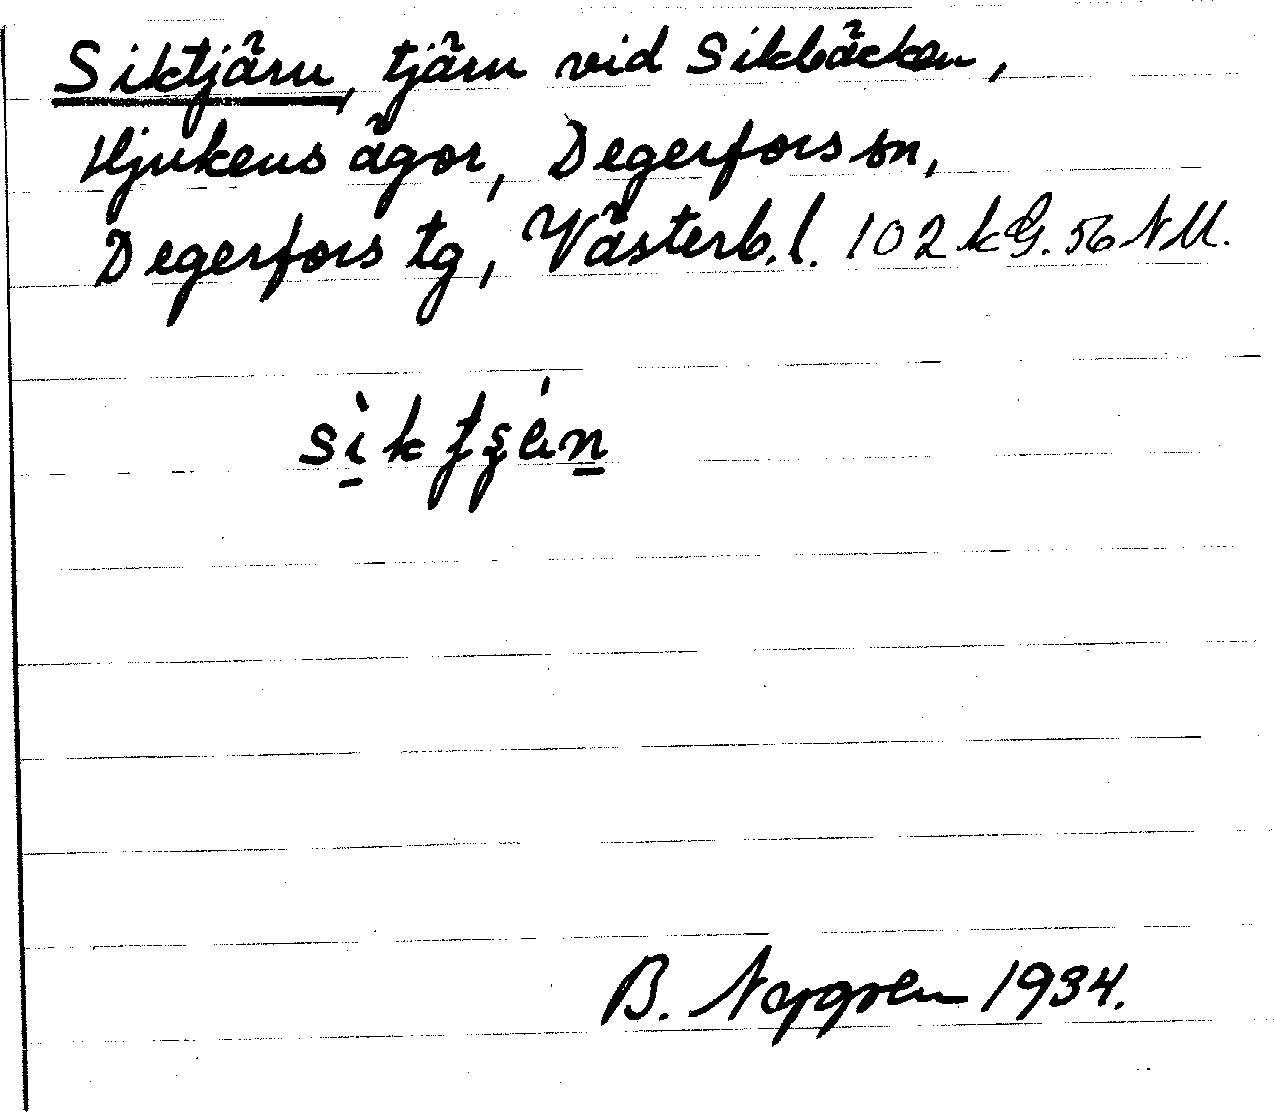 Siktjärn, tjärn vid Sikbäcken,
Hjukens ägor, Degerfors sn,
Degerfors tg, Västerb. l. 102 kG. 56 NM.
B. Nygren 1934.